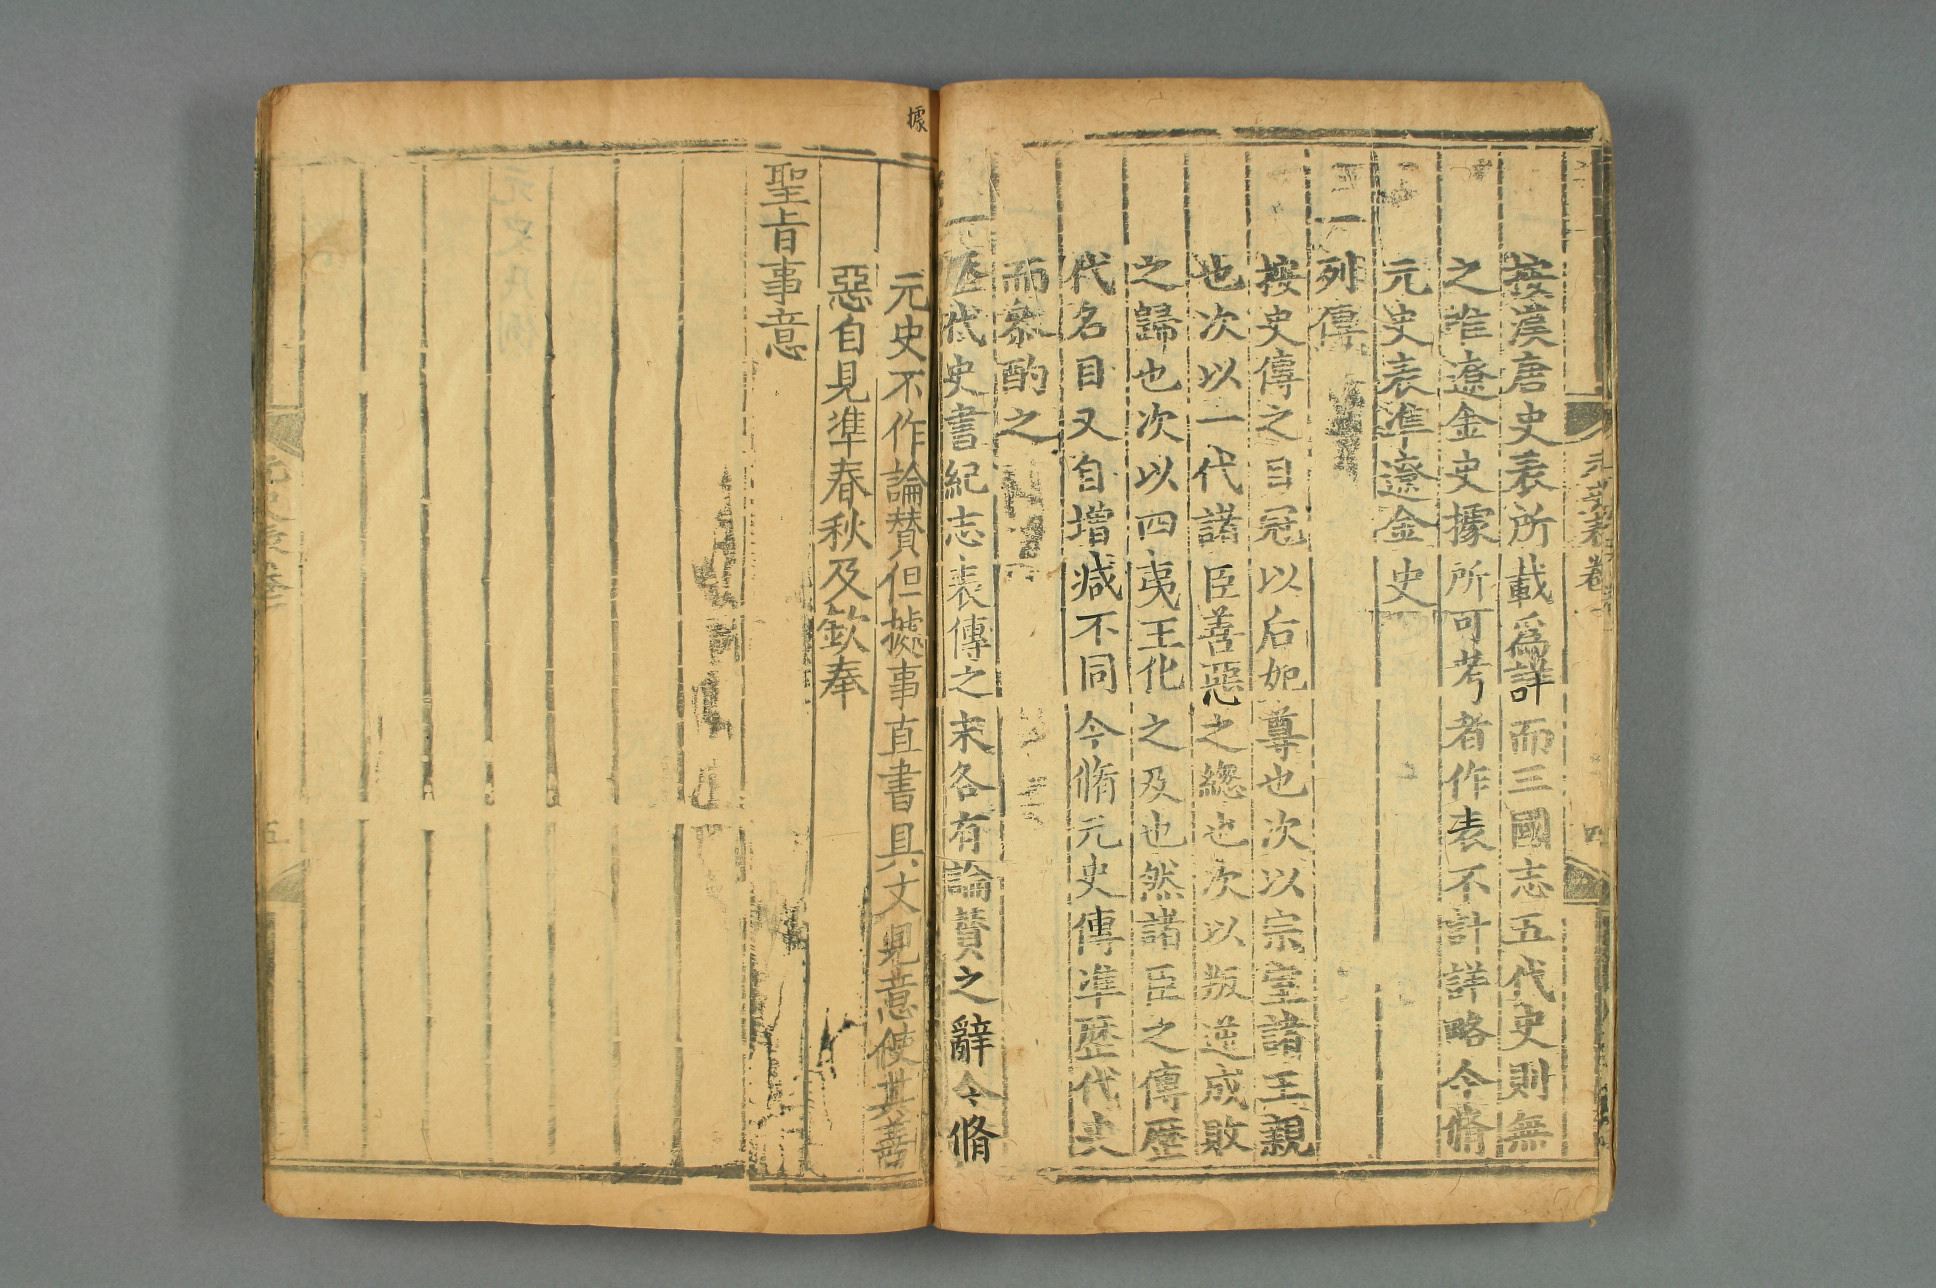 按漢唐史表所載爲詳而三國志五代史則無
之惟遼金史據所可考者作表不計詳略今脩
元史表準遼金史
一列傳
按史傳之目冠以后妃尊也次以宗室諸王親
也次以一代諸臣善惡之總也次以叛逆成敗
之歸也次以四夷王化之及也然諸臣之傳歷
代名目又自增减不同今脩元史傳準歷代史
而叅酌之
一歷代史書紀志表傳之末各有論賛之辭今脩
據
元史不作論賛但據事直書具文見意使其善
惡自見準春秋及欽奉
聖旨事意
五